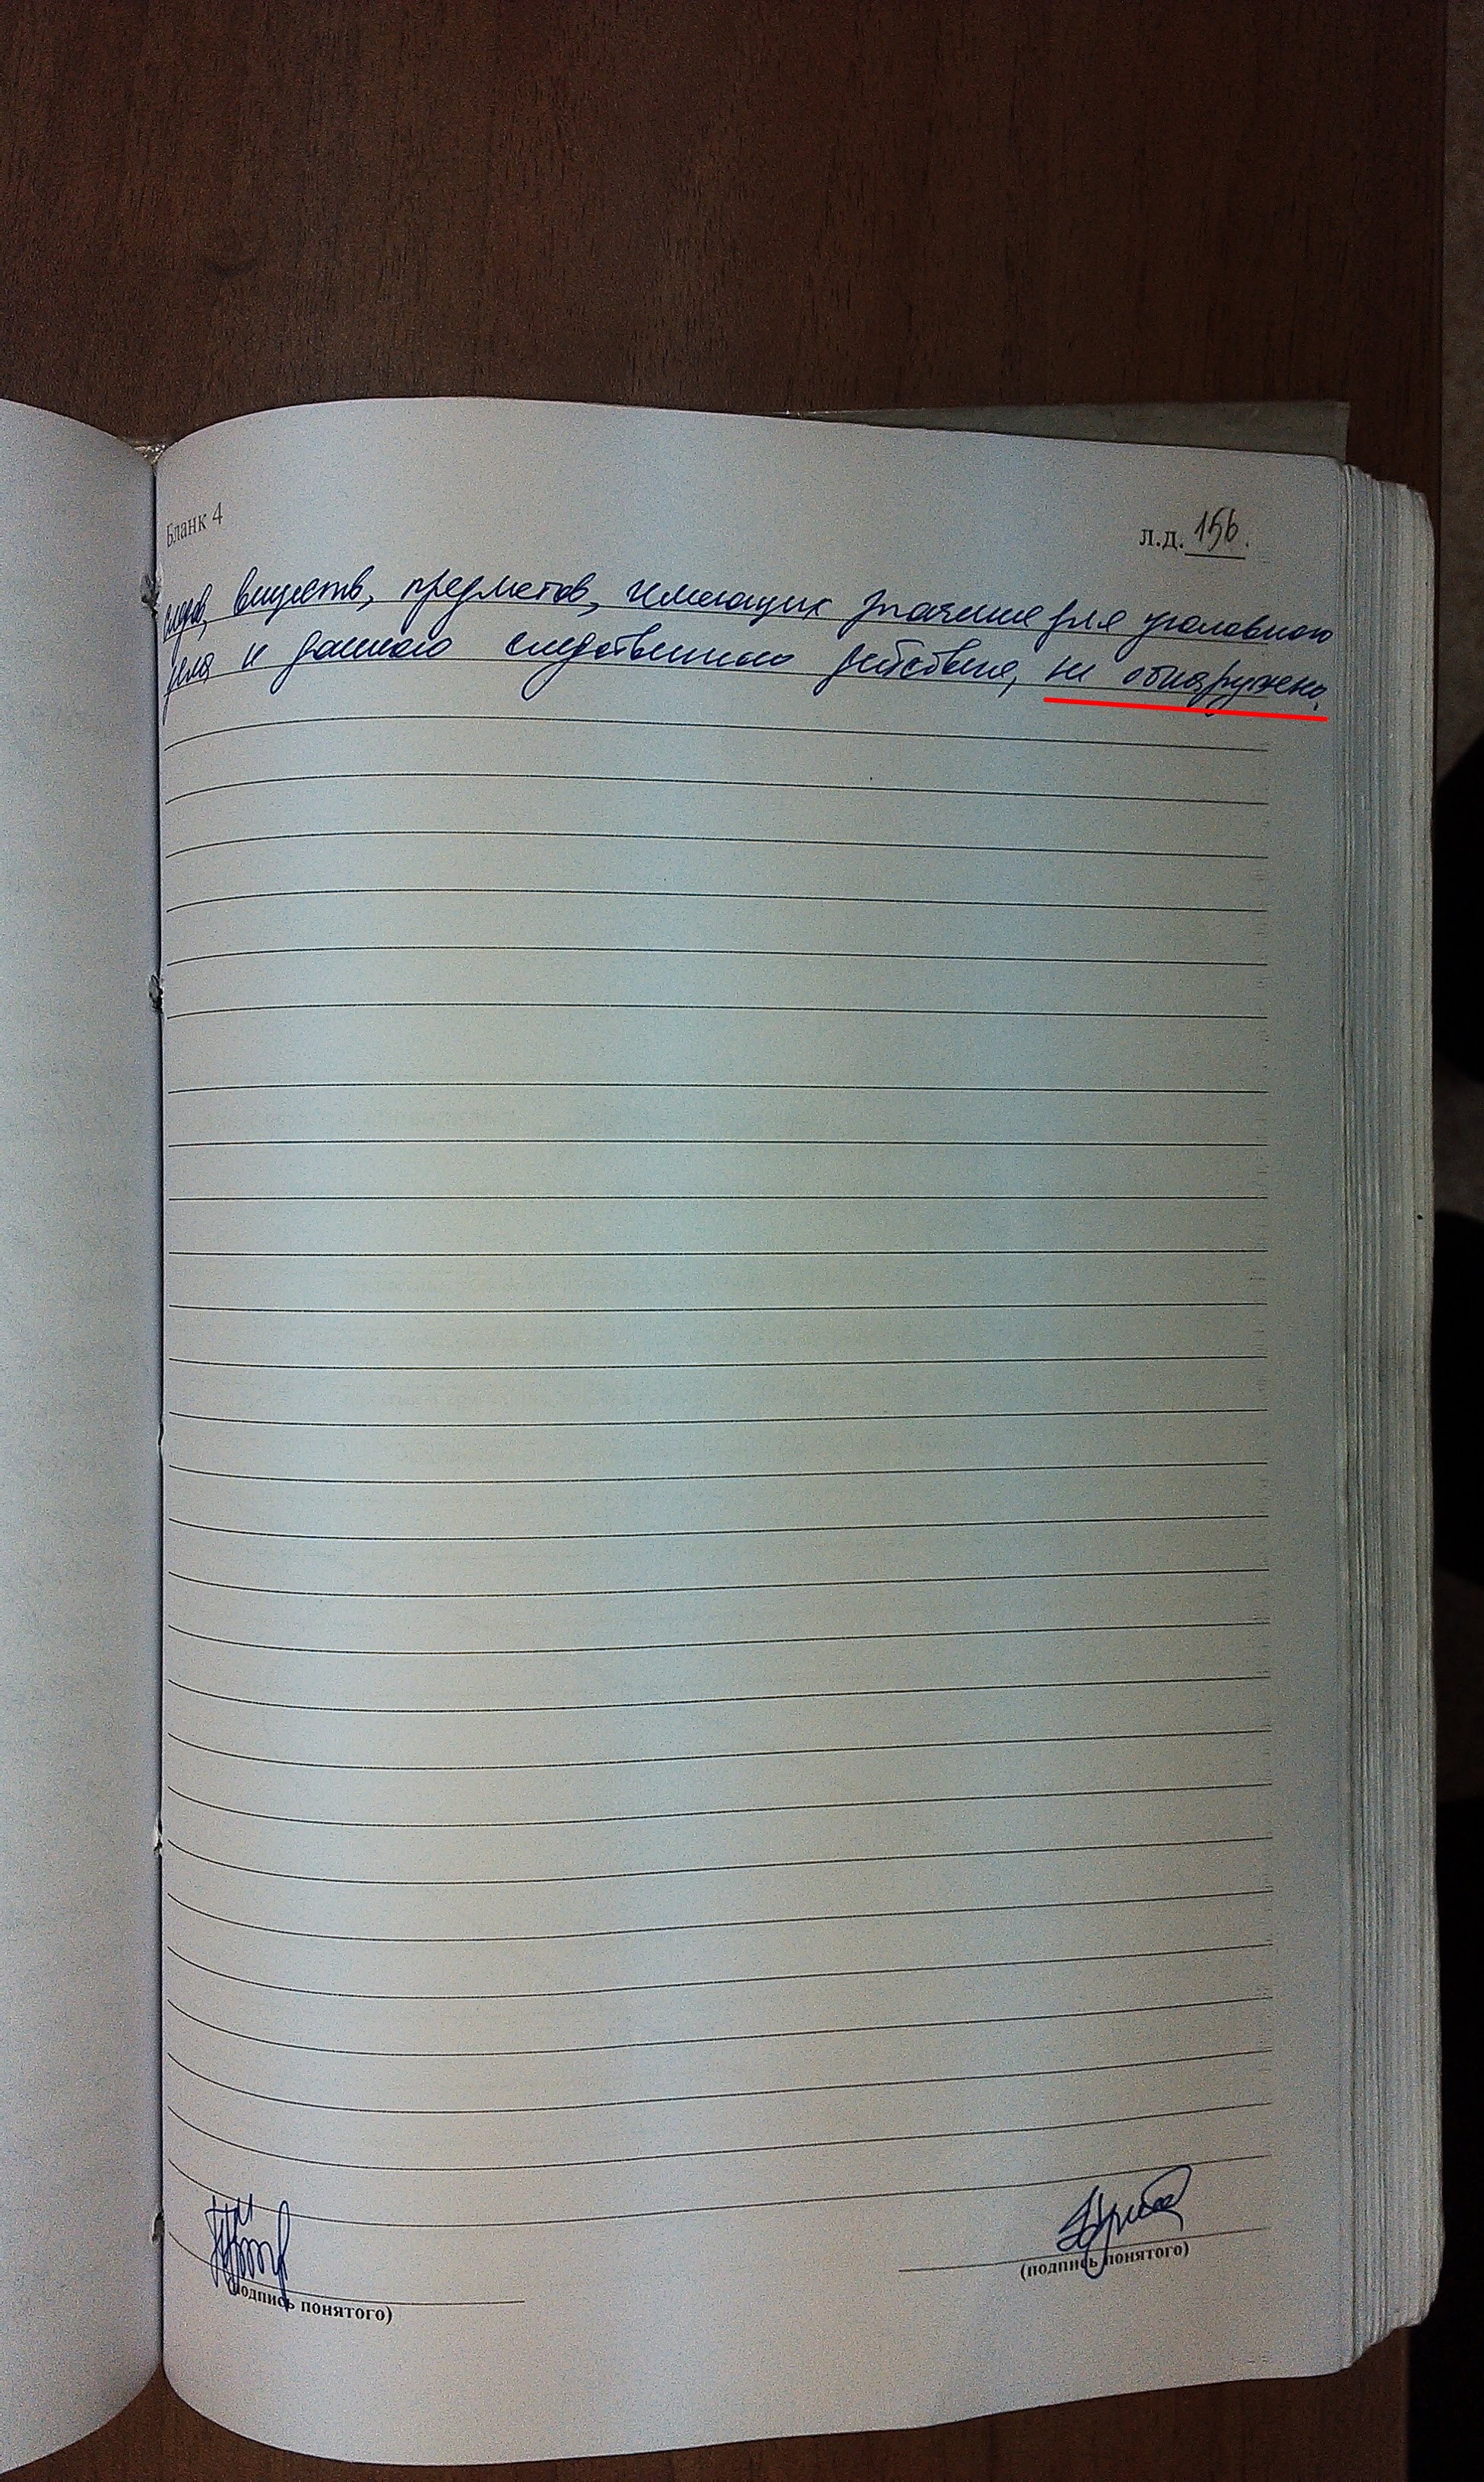 Бланк 4
л.д. 156.
следов, веществ, предметов, имеющих значение для уголовного
дела и данного следственного действия, не обнаружено.
(подпись понятого)
(подпись понятого)